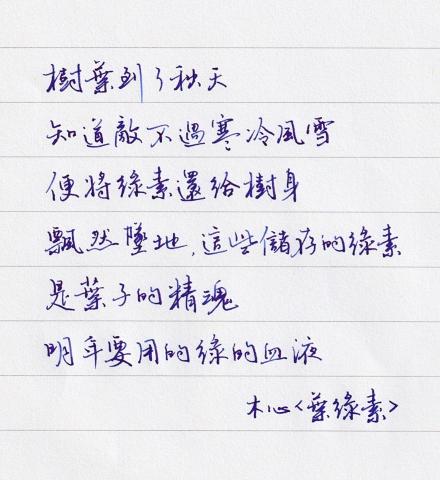 樹葉到了秋天
知道敵不過寒冷風雪
便將綠素還給樹身
飄然墜地,這些儲存的綠素
是葉子的精魂
明年要用的綠的血液
木心<葉綠素>